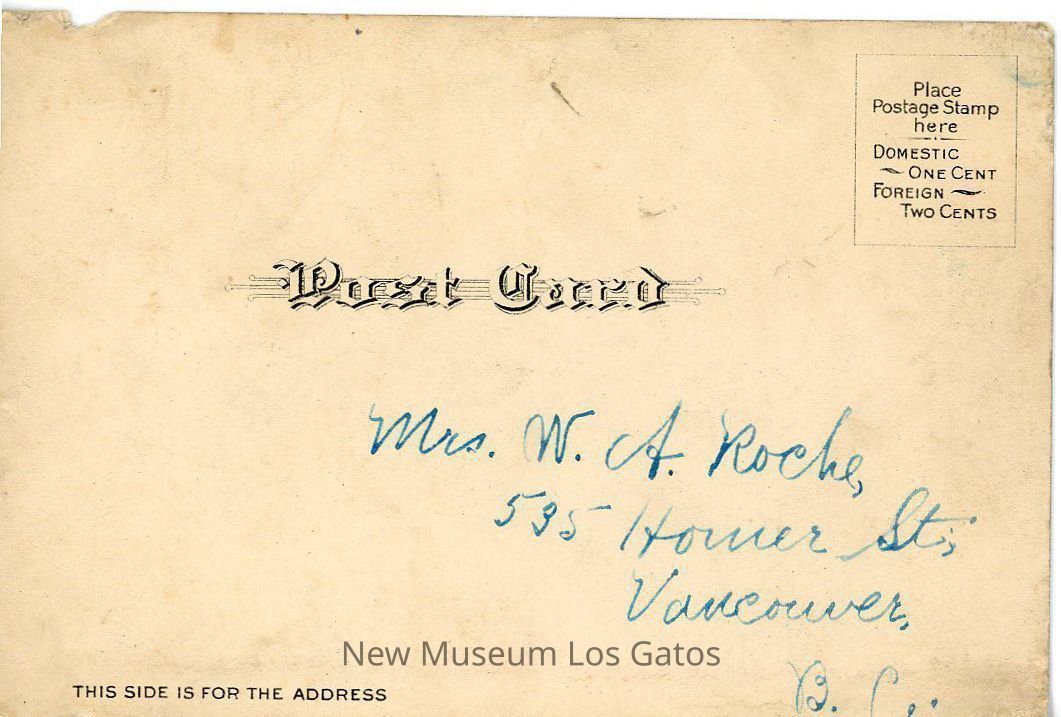 Place
Postage Stamp
here
DOMESTIC
ONE CENT
FOREIGN
TWO CENTS
Post Card
Mrs. W. A. Roche,
535 Homer St.,
Vancouver,
New Museum Los Gatos
B. C.
THIS SIDE IS FOR THE ADDRESS